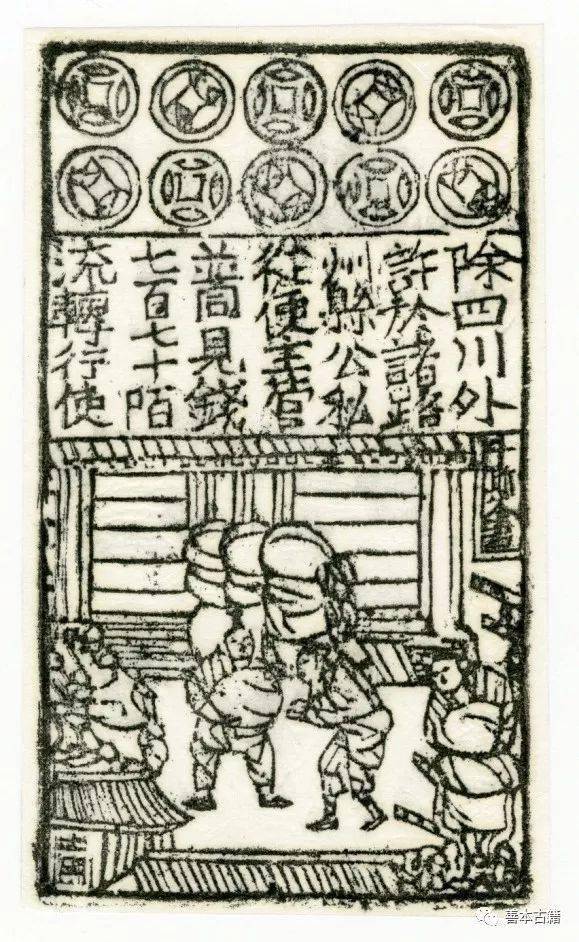 除四川外
許於諸路
州縣公私
從便主管
並同見錢
七百七十陌
流轉行使
千斯倉
善本古籍